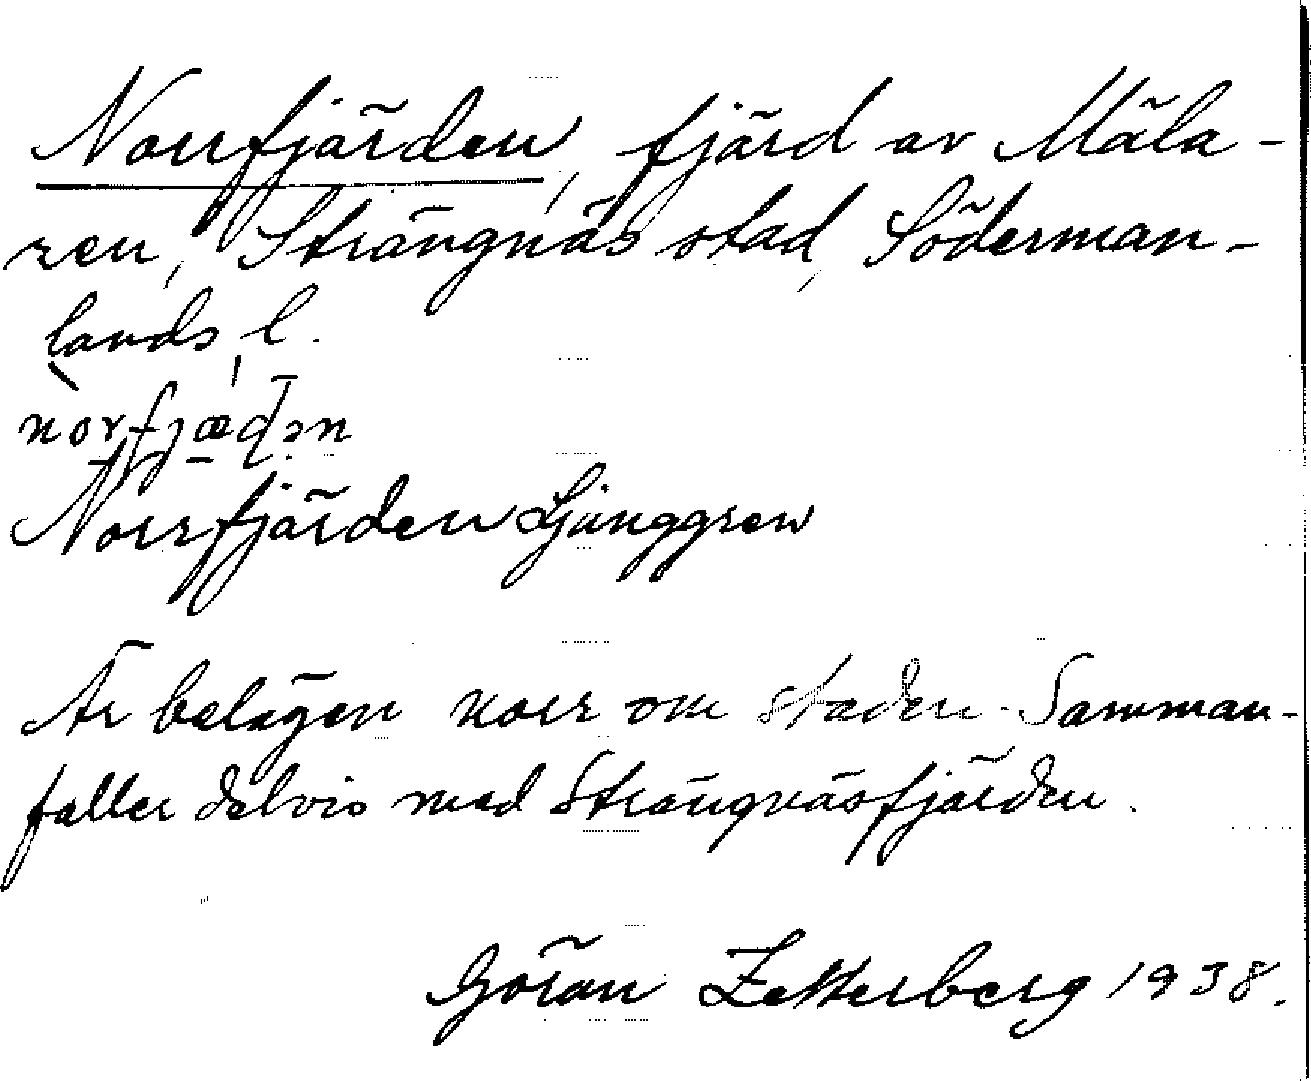 Norrfjärden, fjärd av Mäla-
ren, Strängnäs stad, Söderman-
lands l.
norfjæḍən
Norrfjärden Ljunggren
Är belägen norr om staden. Samman-
faller delvis med Strängnäsfjärden.
Göran Zetterberg 1938.